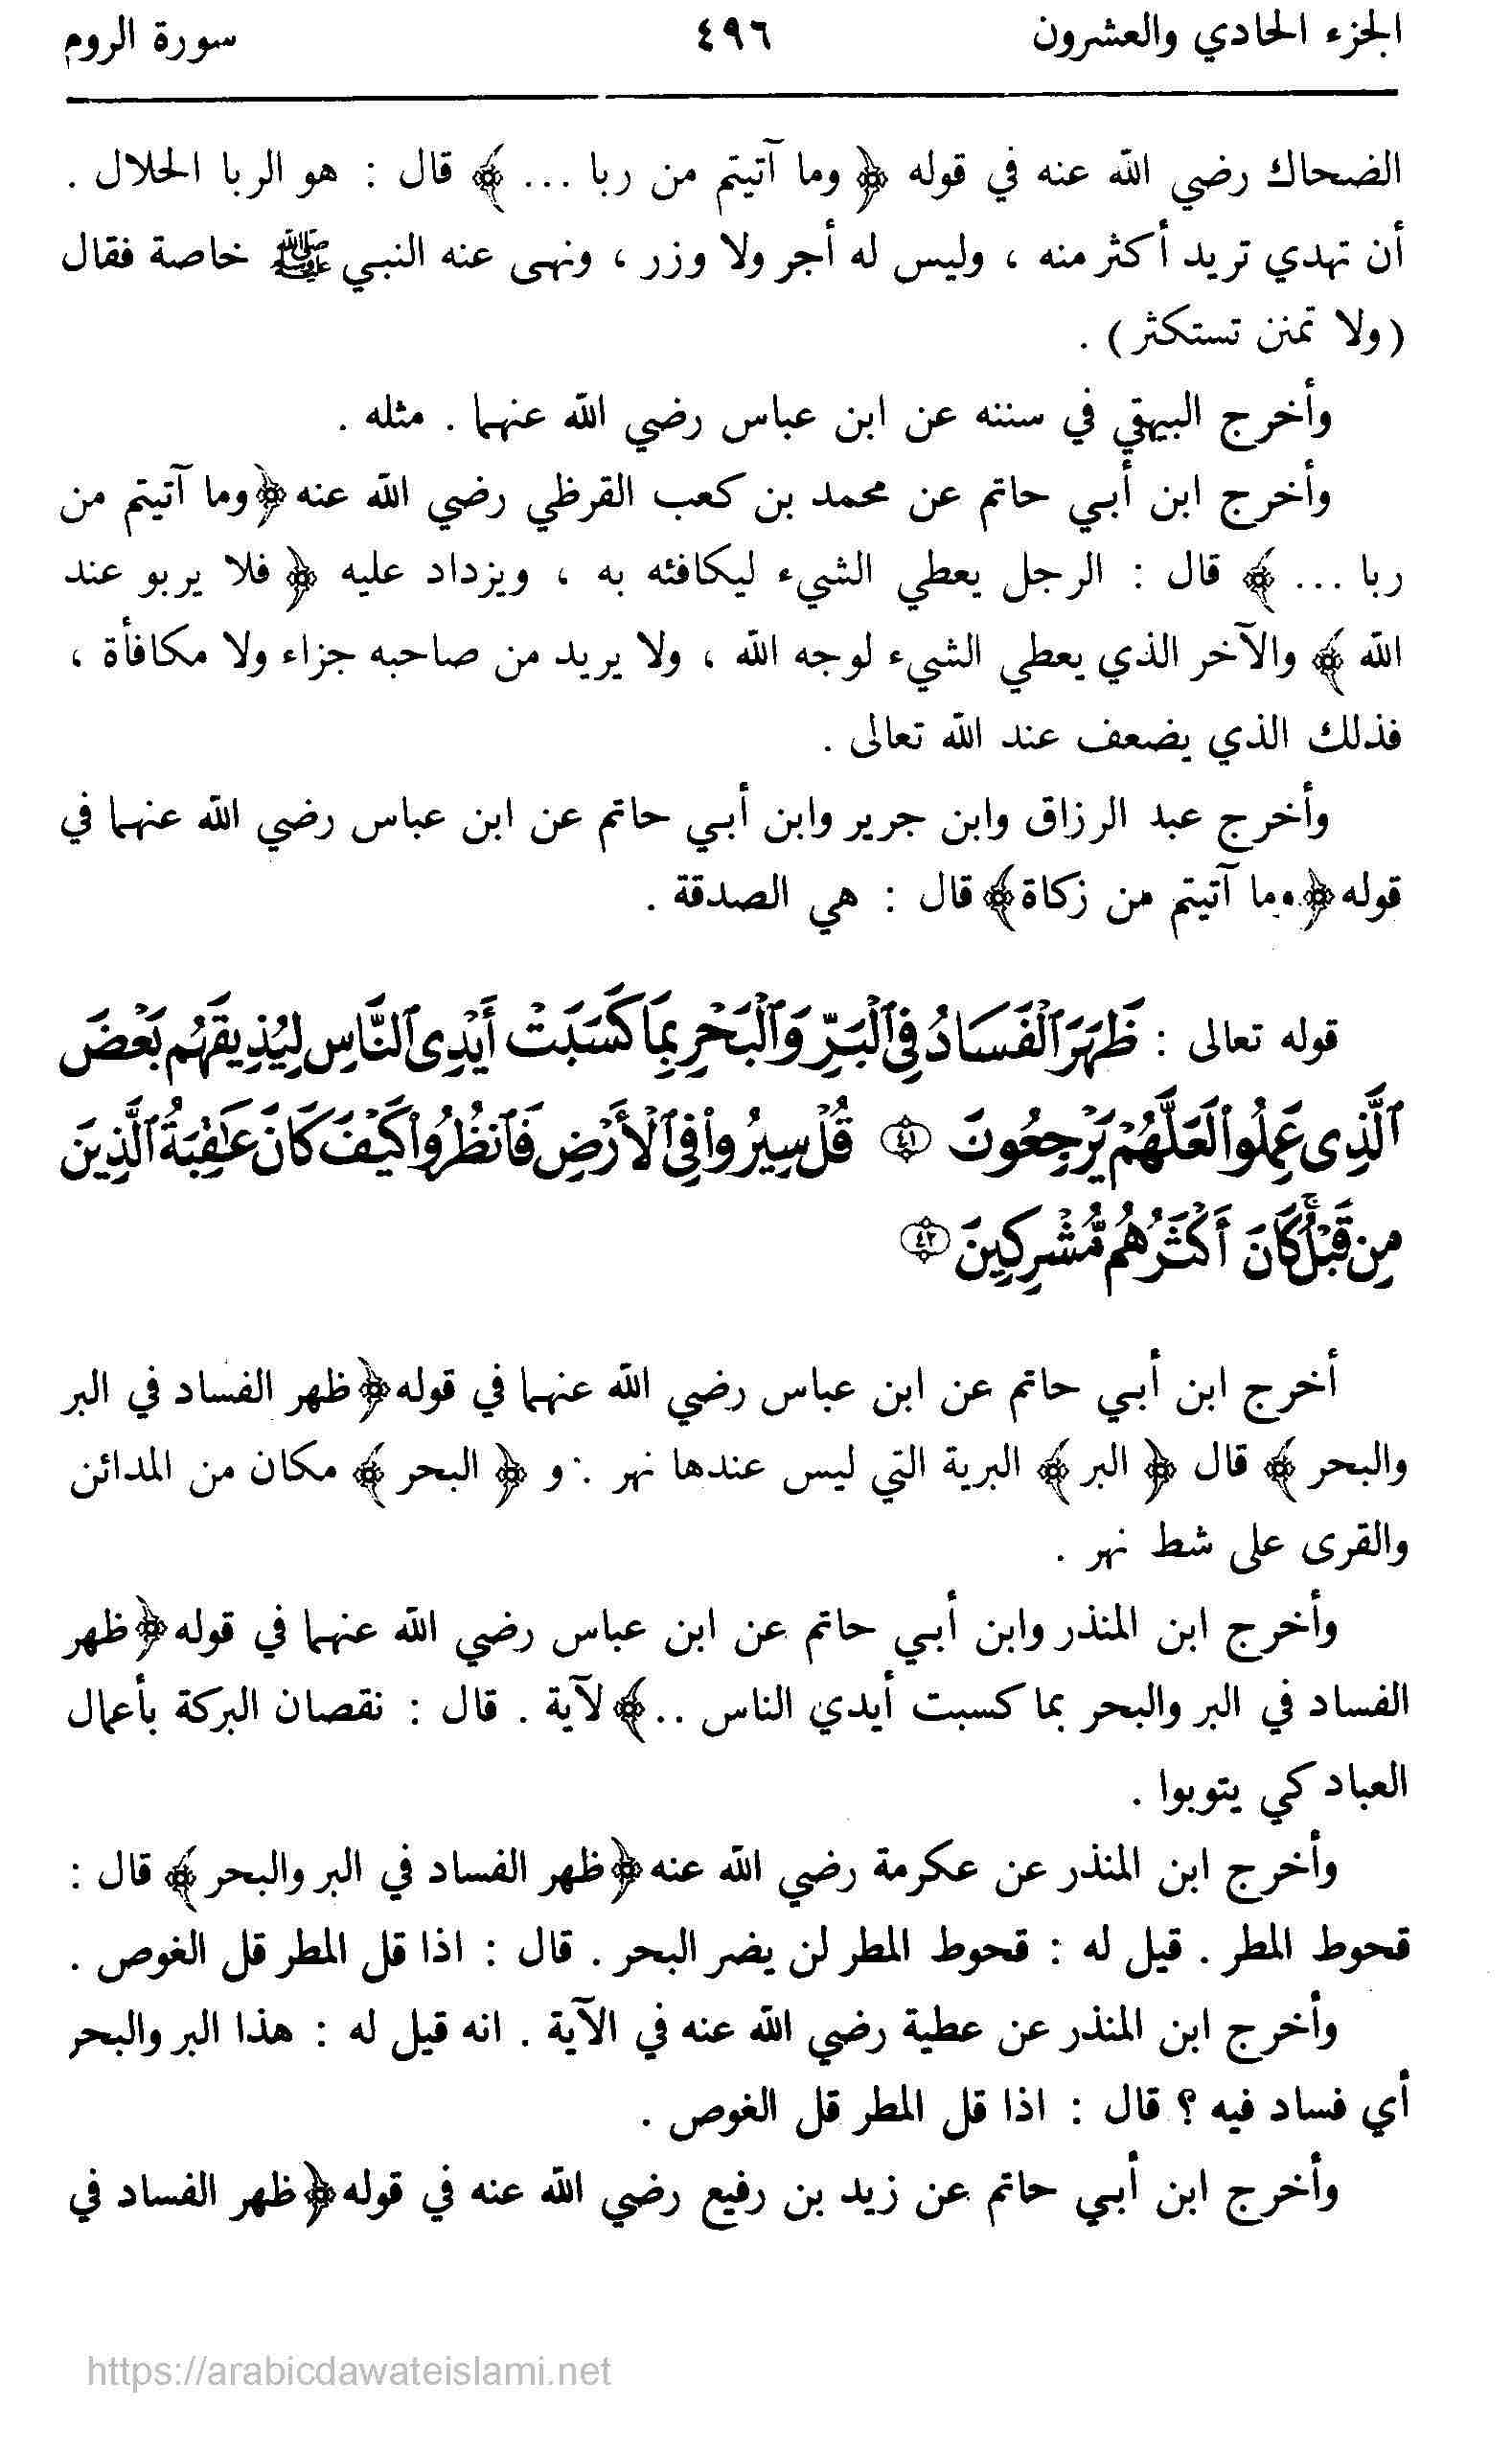 الجزء الحادي والعشرون ٤٩٦ سورة الروم
الضحاك رضي الله عنه في قوله ﴿ وما آتيتم من ربا ... ﴾ قال : هو الربا الحلال .
أن تهدي تريد أكثر منه ، وليس له أجر ولا وزر ، ونهى عنه النبي ﷺ خاصة فقال
(ولا تمنن تستكثر) .
وأخرج البيهقي في سننه عن ابن عباس رضي الله عنهما . مثله .
وأخرج ابن أبي حاتم عن محمد بن كعب القرظي رضي الله عنه ﴿وما آتيتم من
ربا ... ﴾ قال : الرجل يعطي الشيء ليكافئه به ، ويزداد عليه ﴿ فلا يربو عند
الله ﴾ والآخر الذي يعطي الشيء لوجه الله ، ولا يريد من صاحبه جزاء ولا مكافأة ،
فذلك الذي يضعف عند الله تعالى .
وأخرج عبد الرزاق وابن جرير وابن أبي حاتم عن ابن عباس رضي الله عنهما في
قوله ﴿وما آتيتم من زكاة﴾ قال : هي الصدقة .
قوله تعالى : ظَهَرَ ٱلْفَسَادُ فِى ٱلْبَرِّ وَٱلْبَحْرِ بِمَا كَسَبَتْ أَيْدِى ٱلنَّاسِ لِيُذِيقَهُم بَعْضَ
ٱلَّذِى عَمِلُوا۟ لَعَلَّهُمْ يَرْجِعُونَ ۝٤١ قُلْ سِيرُوا۟ فِى ٱلْأَرْضِ فَٱنظُرُوا۟ كَيْفَ كَانَ عَـٰقِبَةُ ٱلَّذِينَ
مِن قَبْلُ ۚ كَانَ أَكْثَرُهُم مُّشْرِكِينَ ۝٤٢
أخرج ابن أبي حاتم عن ابن عباس رضي الله عنهما في قوله ﴿ظهر الفساد في البر
والبحر ﴾ قال ﴿ البر ﴾ البرية التي ليس عندها نهر . و ﴿ البحر ﴾ مكان من المدائن
والقرى على شط نهر .
وأخرج ابن المنذر وابن أبي حاتم عن ابن عباس رضي الله عنهما في قوله ﴿ظهر
الفساد في البر والبحر بما كسبت أيدي الناس ..﴾ لآية . قال : نقصان البركة بأعمال
العباد كي يتوبوا .
وأخرج ابن المنذر عن عكرمة رضي الله عنه ﴿ظهر الفساد في البر والبحر﴾ قال :
قحوط المطر . قيل له : قحوط المطر لن يضر البحر . قال : اذا قل المطر قل الغوص .
وأخرج ابن المنذر عن عطية رضي الله عنه في الآية . انه قيل له : هذا البر والبحر
أي فساد فيه ؟ قال : اذا قل المطر قل الغوص .
وأخرج ابن أبي حاتم عن زيد بن رفيع رضي الله عنه في قوله ﴿ظهر الفساد في
https://arabicdawateislami.net